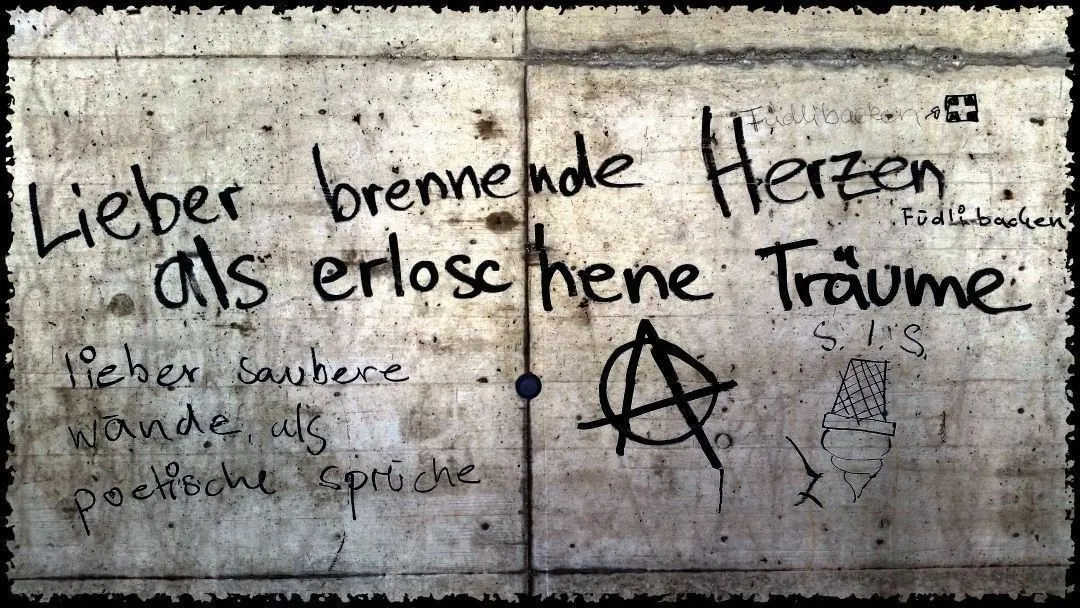 Füdlibacken
Lieber brennende Herzen
Füdlibacken
als erloschene Träume
S. I. S.
lieber saubere
wände, als
poetische sprüche